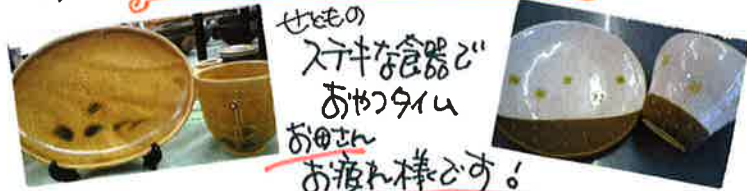 せともの
ステキな食器で
おやつタイム
お母さん
お疲れ様です!